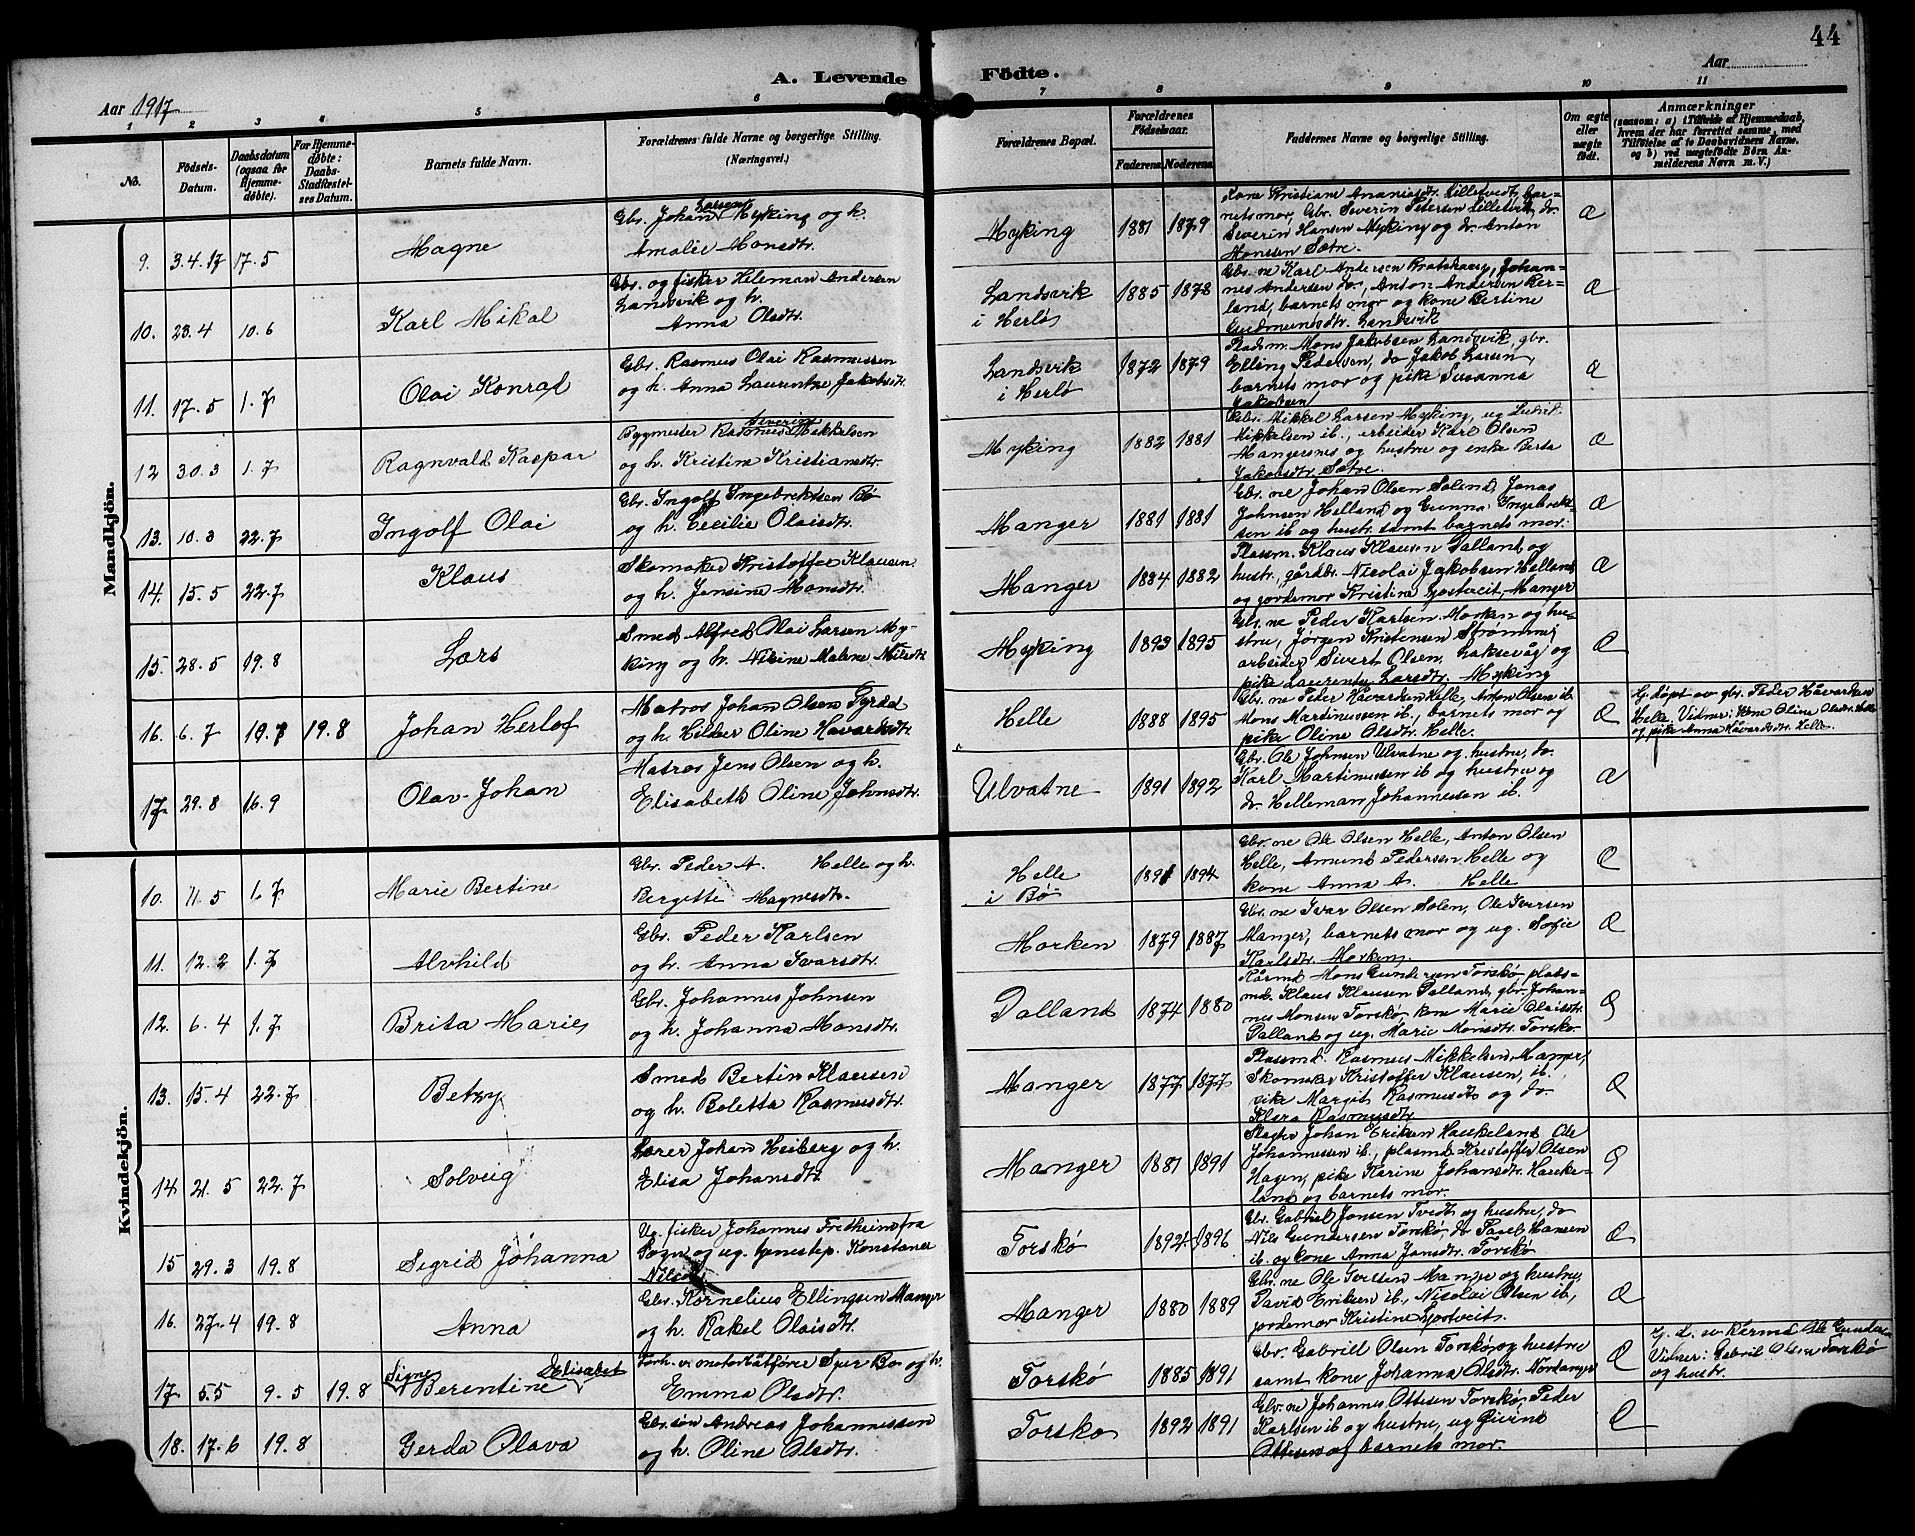 44
A. Levende Födte.
Aar 1917
Aar
1 2 3 4 5 6 7 8 9 10 11
No.
Fødsels-Datum.
Daabsdatum (ogsaa for Hjemmedøbte).
For Hjemmedøbte: Daabs-Stadfæstelses Datum.
Barnets fulde Navn.
Forældrenes fulde Navne og borgerlige Stilling. (Næringsvei.)
Forældrenes Bopæl.
Forældrenes Fødselsaar.
Faderens. Moderens.
Faddernes Navne og borgerlige Stilling.
Om ægte eller uægte født.
Anmærkninger (saasom: a) i Tilfælde af Hjemmedaab, hvem der har forrettet samme, med Tilføielse af to Daabsvidners Navne, og b) ved uægtefødte Børn Anmelderens Navn m. V.)
Mandkjön.
9. 3.4.17 17.5 Magne
Gbr. Johan Larsen Myking og h.
Amalie Monsdtr.
Myking 1881 1879
Kone Kristiane Ananiasdtr. Lilletvedt, bar-
nets mor, Gbr. Severin Petersen Lilletvedt, do.
Severin Hansen Myking og do. Anton
Monsen Sætre.
Æ
10. 23.4 10.6 Karl Mikal
Gbr. og fisker Hileman Andersen
Landsvik og h.
Anna Olsdtr.
Landsvik
i Herlø
1885 1878
Gbr.ne Karl Andersen Bratshaug, Johan-
nes Andersen do, Anton Andersen Ber-
land, barnets mor og kone Bertine
Gudmundsdtr. Landsvik
Æ
11. 17.5 1.7 Olai Konrad
Gbr. Rasmus Olai Rasmussen
og h. Anna Laurentse Jakobsdtr.
Landsvik
i Herlø
1872 1879
Pladsm. Mons Jakobsen Landsvik, gbr.
Elling Pedersen, do Jakob Larsen
barnets mor og pike Susanna
Jakobsen
Æ
12 30.3 1.7 Ragnvald Kaspar
Bygmester Rasmus Severin Mikkelsen
og h. Kristine Kristiansdtr.
Myking 1882 1881
Gbr. Mikkel Larsen Myking, ug Ludvik
Mikkelsen ib., arbeider Karl Olsen
Mangersnes og hustru og enke Berta
Jakobsdtr Sætre.
Æ
13. 10.3 22.7 Ingolf Olai
Gbr. Ingolf Ingebrektsen Bø
og h. Cecilie Olaisdtr.
Manger 1881 1881
Gbr. ne Johan Olsen Solend, Jonas
Johnsen Helland og Gunna Ingebrekt-
sen ib og hustr. samt barnets mor.
Æ
14. 15.5 22.7 Klaus
Skomaker Kristoffer Klausen
og h. Jensine Monsdtr.
Manger 1884 1882
Plassm. Klaus Klausen Dalland og
hustr., gårdbr. Nicolai Jakobsen Helland
og jordemor Kristine Gjostveit, Manger
Æ
15. 28.5 19.8 Lars
Smed Alfred Olai Larsen My-
king og h. Nilsine Malene Nilsdtr
Myking 1893 1895
Gbr. ne Peder Karlsen Morken og hu-
stru, Jørgen Kristensen Strømme,
arbeider Sivert Olsen, Laksevåg og
pike Laurentse Larsdtr. Myking
Æ
16. 6.7 10.7 19.8 Johan Herlof
Matros Johan Olsen Tyrdal
og h. Hilder Oline Havardsdtr
Helle 1888 1895
Gbr. ne Peder Håvardsen Helle, Anton Olsen ib
Mons Martinussen ib., barnets mor og
pike Oline Olsdtr. Helle.
Æ
Hj. døpt av gbr. Peder Håvardsen
Helle. Vidner: Kone Oline Olsdtr. Helle
og pike Anna Håvardsdtr. Helle.
17. 29.8 16.9 Olav Johan
Matros Jens Olsen og h.
Elisabeth Oline Johnsdtr.
Ulvatne 1891 1892
Gbr. Ole Johnsen Ulvatne og hustru, do.
Karl Martinussen ib og hustru og
do. Helleman Johannessen ib.
Æ
Kvindekjön.
10. 11.5 1.7 Marie Bertine
Gbr. Peder A. Helle og h.
Bergitte Magnesdtr.
Helle
i Bø
1891 1894
Gbr. ne Ole Olsen Helle, Anton Olsen
Helle, Amund Pedersen Helle og
kone Anna A. Helle
Æ
11. 12.2 1.7 Alvhild
Gbr. Peder Karlsen
og h. Anna Ivarsdtr.
Morken 1879 1887
Gbr. ne Ivar Olsen Solen, Ole Iversen
Manger, barnets mor og ug. Sofie
Karlsdtr. Morken.
Æ
12. 6.4 1.7 Brita Marie
Gbr. Johannes Johnsen
og h. Johanna Monsdtr.
Dalland 1874 1880
Kårmd Mons Gundersen Torskø, plads-
md. Klaus Klausen Dalland, gbr. Johan-
nes Monsen Torskø, kone Marie Olaisdtr.
Dalland og ug. Marie Monsdtr. Torskø.
Æ
13. 15.4 22.7 Betzy
Smed Bertin Klausen
og h. Boletta Rasmusdtr.
Manger 1877 1877
Plassmd. Rasmus Mikkelsen, Manger,
Skomaker Kristoffer Klausen, ib.
pike Margit Rasmusdtr og do.
Klara Rasmusdtr
Æ
14. 21.5 22.7 Solveig
Lærer Johan Heiberg og h.
Elisa Johansdtr
Manger 1881 1891
Slagter Johan Eriksen Haukeland, Ole
Johannessen ib., plasmd. Kristoffer Olsen
Hagen, pike Karine Johansdtr. Hauke-
land og barnets mor.
Æ
15 29.3 19.8 Sigrid Johanna
Ug. fisker Johannes Fredheim fra
Sogn og ug. tjenestep. Konstanse
Nilsen
Torskø 1892 1896
Gbr. Gabriel Jonsen Tvedt og hustru, do
Nils Gundersen Torskø, do Paul Hansen
ib. og kone Anna Jonsdtr. Torskø
Æ
16. 27.4 19.8 Anna
Gbr. Kornelius Ellingsen Manger
og h. Rakel Olaisdtr.
Manger 1880 1889
Gbr. ne Ole Iversen Manger og hustru,
David Eriksen ib., Nicolai Olsen ib,
jordemor Kristine Gjostveit.
Æ
17 5.5 9.5 19.8 Signe Berentine Elisabet
Forh. v. motorbåtfører Sjur Bø og h.
Emma Olsdtr.
Torskø 1885 1891
Gbr. Gabriel Olsen Torskø og hustru
samt kone Johanna Olsdtr. Nordanger
Æ
Hj. d. av Kårmd. Ole Gunders.
Vidner: Gabriel Olsen Torskø
og hustr.
18. 17.6 19.8 Gerda Olava
Gbr.søn Andreas Johannessen
og h. Oline Olsdtr.
Torskø 1892 1891
Gbr. ne Johannes Ottesen Torskø, Peder
Karlsen ib og hustru, ug Eivind
Ottesen og barnets mor.
Æ